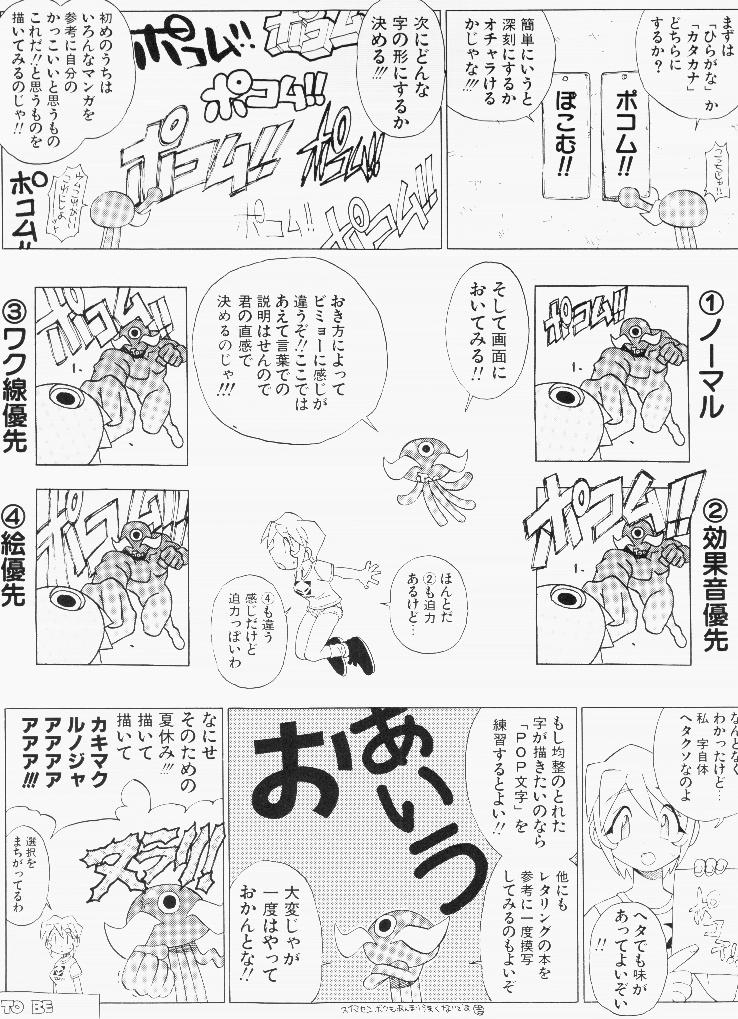 まずは
「ひらがな」か
「カタカナ」
どちらに
するか？
ポコム!!
ぽこむ!!
簡単にいうと
深刻にするか
オチャラける
かじゃな!!
次にどんな
字の形にするか
決める!!!
ポコム!!
ポコム!!
ポコム!!
ポコム!!
ポコム!!
ポコム!!
ポコム!!
ポコム!!
初めのうちは
いろんなマンガを
参考に自分の
かっこいいと思うもの
これだ!!と思うものを
描いてみるのじゃ!!
①ノーマル
ポコム!!
そして画面に
おいてみる!!
おき方によって
ビミョーに感じが
違うぞ!!ここでは
あえて言葉での
説明はせんので
君の直感で
決めるのじゃ!!!
③ワク線優先
ポコム!!
②効果音優先
ポコム!!
ほんとだ
②も迫力
あるけど…
④も違う
感じだけど
迫力っぽいわ
④絵優先
ポコム!!
なんとなく
わかったけど…
私 字自体
ヘタクソなのよ
ポコム
ヘタでも味が
あってよいぞい
!!
もし均整のとれた
字が描きたいのなら
「POP文字」を
練習するとよい!!
他にも
レタリングの本を
参考に一度模写
してみるのもよいぞ
あいうお
大変じゃが
一度はやって
おかんとな!!
なにせ
そのための
夏休み!!!
描いて
描いて
カキマク
ルノジャ
アアアア
アアア!!!
選択を
まちがってるわ
TO BE